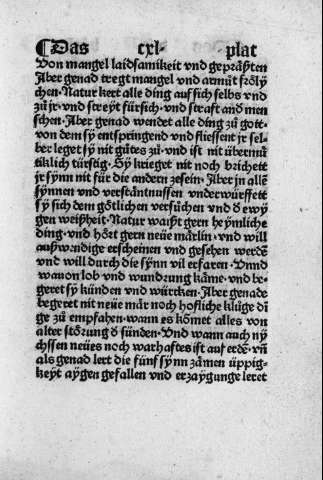 ¶Das cxl· plat
Von mangel laidsamikeit vnd gepräßten
Aber genad tregt mangel vnd armůt frölÿ
chen· Natur kert alle ding auf sich selbs vnd
zů jr· vnd streÿt fürsich· vnd straft and men
schen· Aber genad wendet alle ding zů gott·
von dem sÿ entspringend vnd fliessent jr sel-
ber leget sÿ nit gůtes zů· vnd ist nit übermů
tiklich türstig· Sÿ krieget nit noch brichett
jr sÿnn nit für die andern zesein· Aber jn allē
sÿnnen vnd verständtnussen vnderwürffett
sÿ sich dem götlichen versůchen vnd d ewÿ
gen weißheit· Natur waißt gern heÿmliche
ding· vnd hört gern neüe märlin· vnd will
außwendige erscheinen vnd gesehen werdē
vnd will durch die sÿnn vil erfaren· Vnnd
wauon lob vnd wundrung käme· vnd be-
geret sÿ künden vnd würcken· Aber genade
begeret nit neüe mär noch hofliche klůge dī
ge zů empfahen· wann es kōmet alles von
alter störung d sünden· Vnd wann auch nÿ
chssen neües noch warhaftes ist auf erdē· vñ
als genad lert die fünf sÿnn zämen üppig-
keyt aÿgen gefallen vnd erzaÿgunge leret